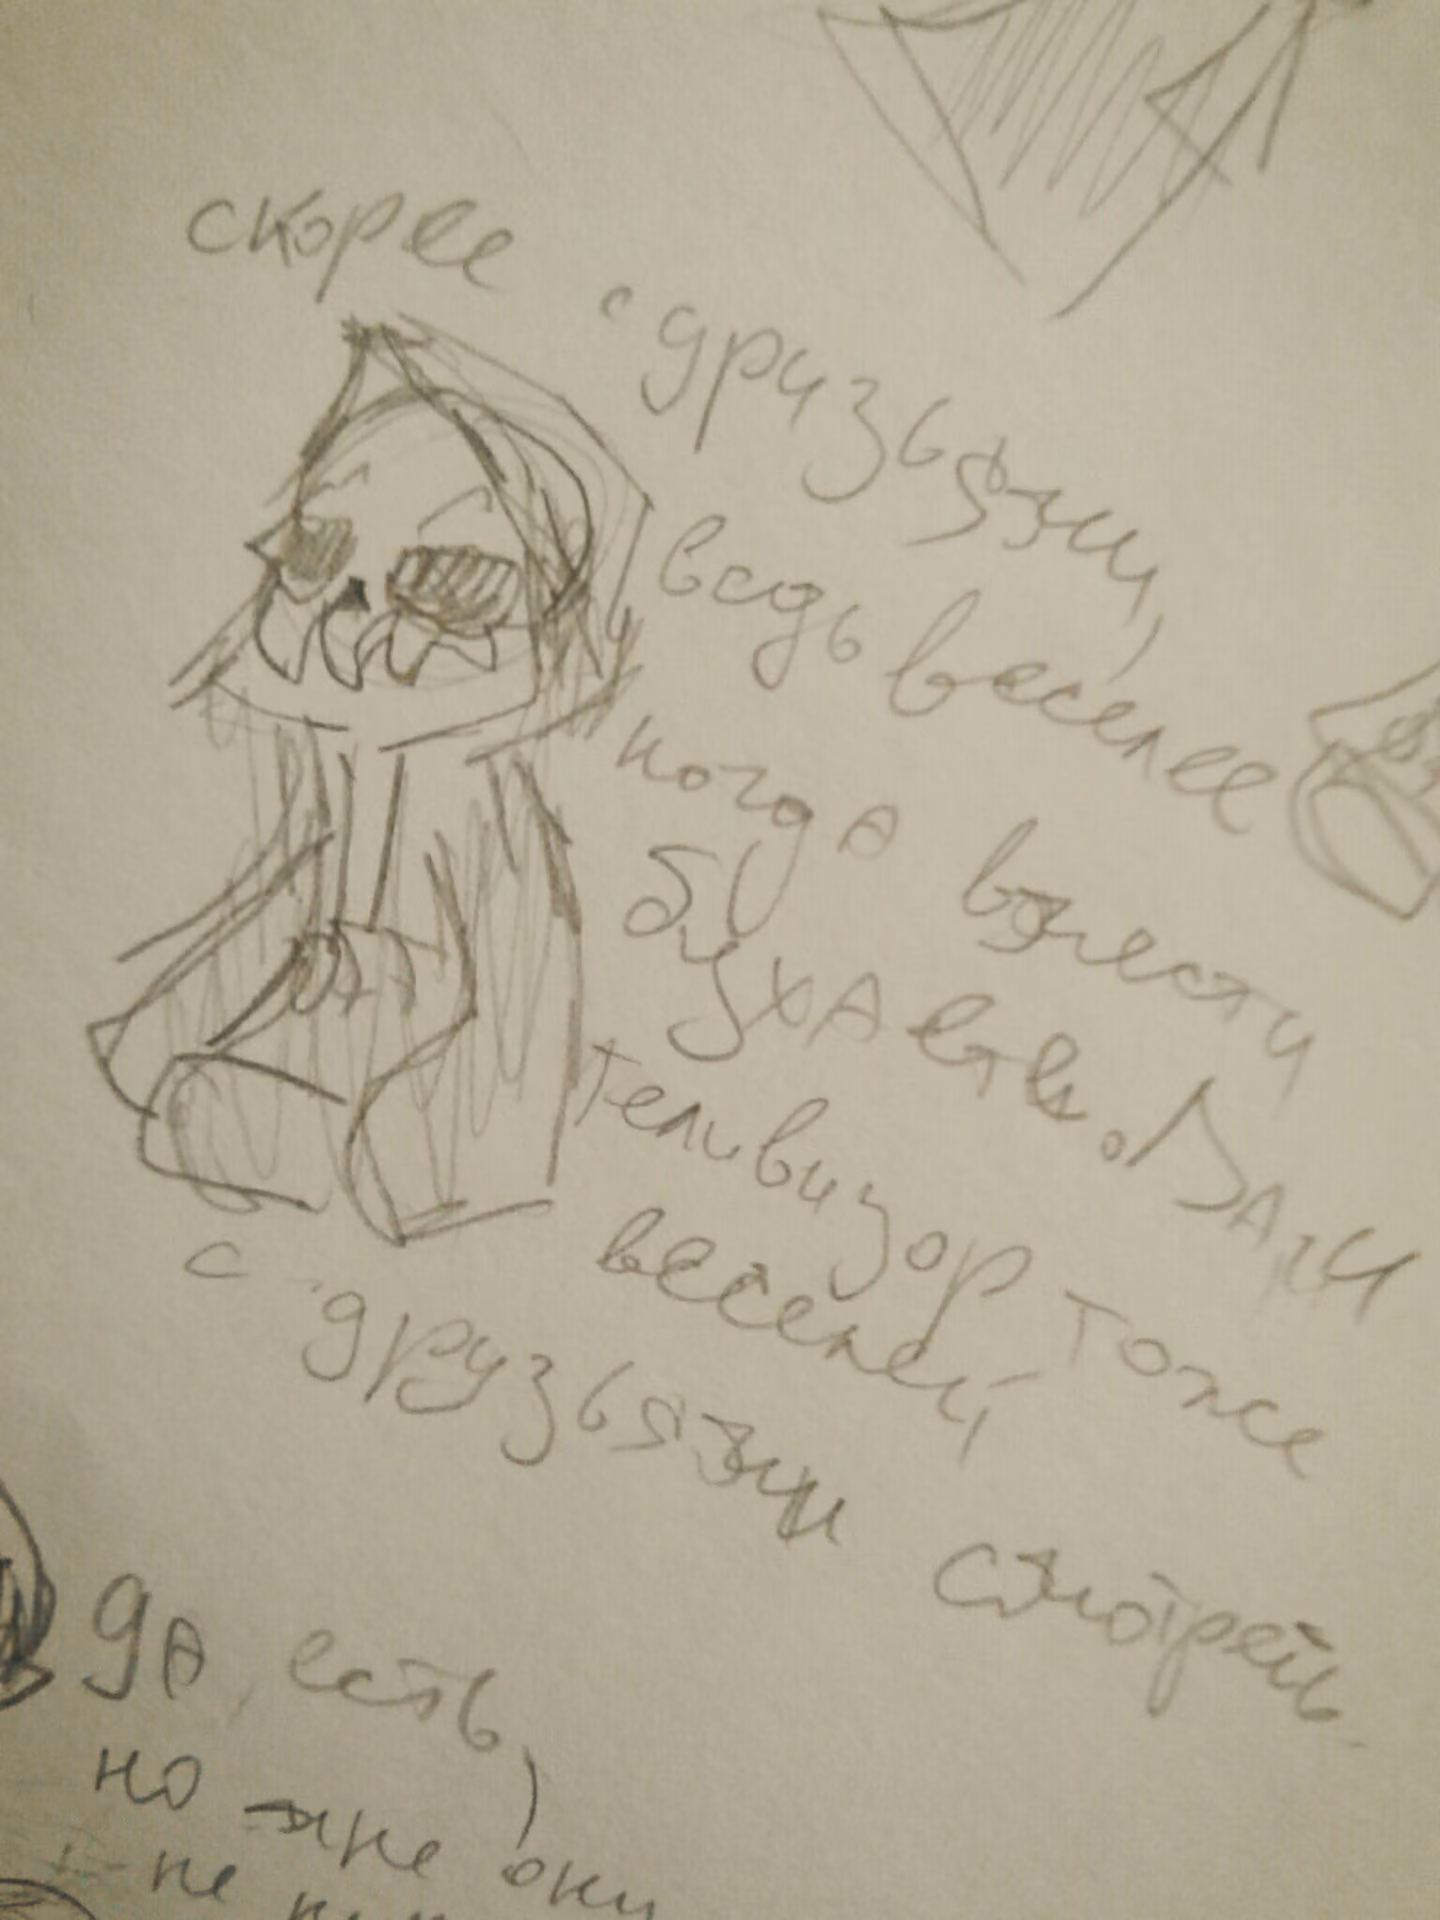 скорее
с друзьями,
ведь веселее
когда вместе
бухаете. Даже
теливизор тоже
веселей
с друзьями смотреть
да, есть,
но мне они
не